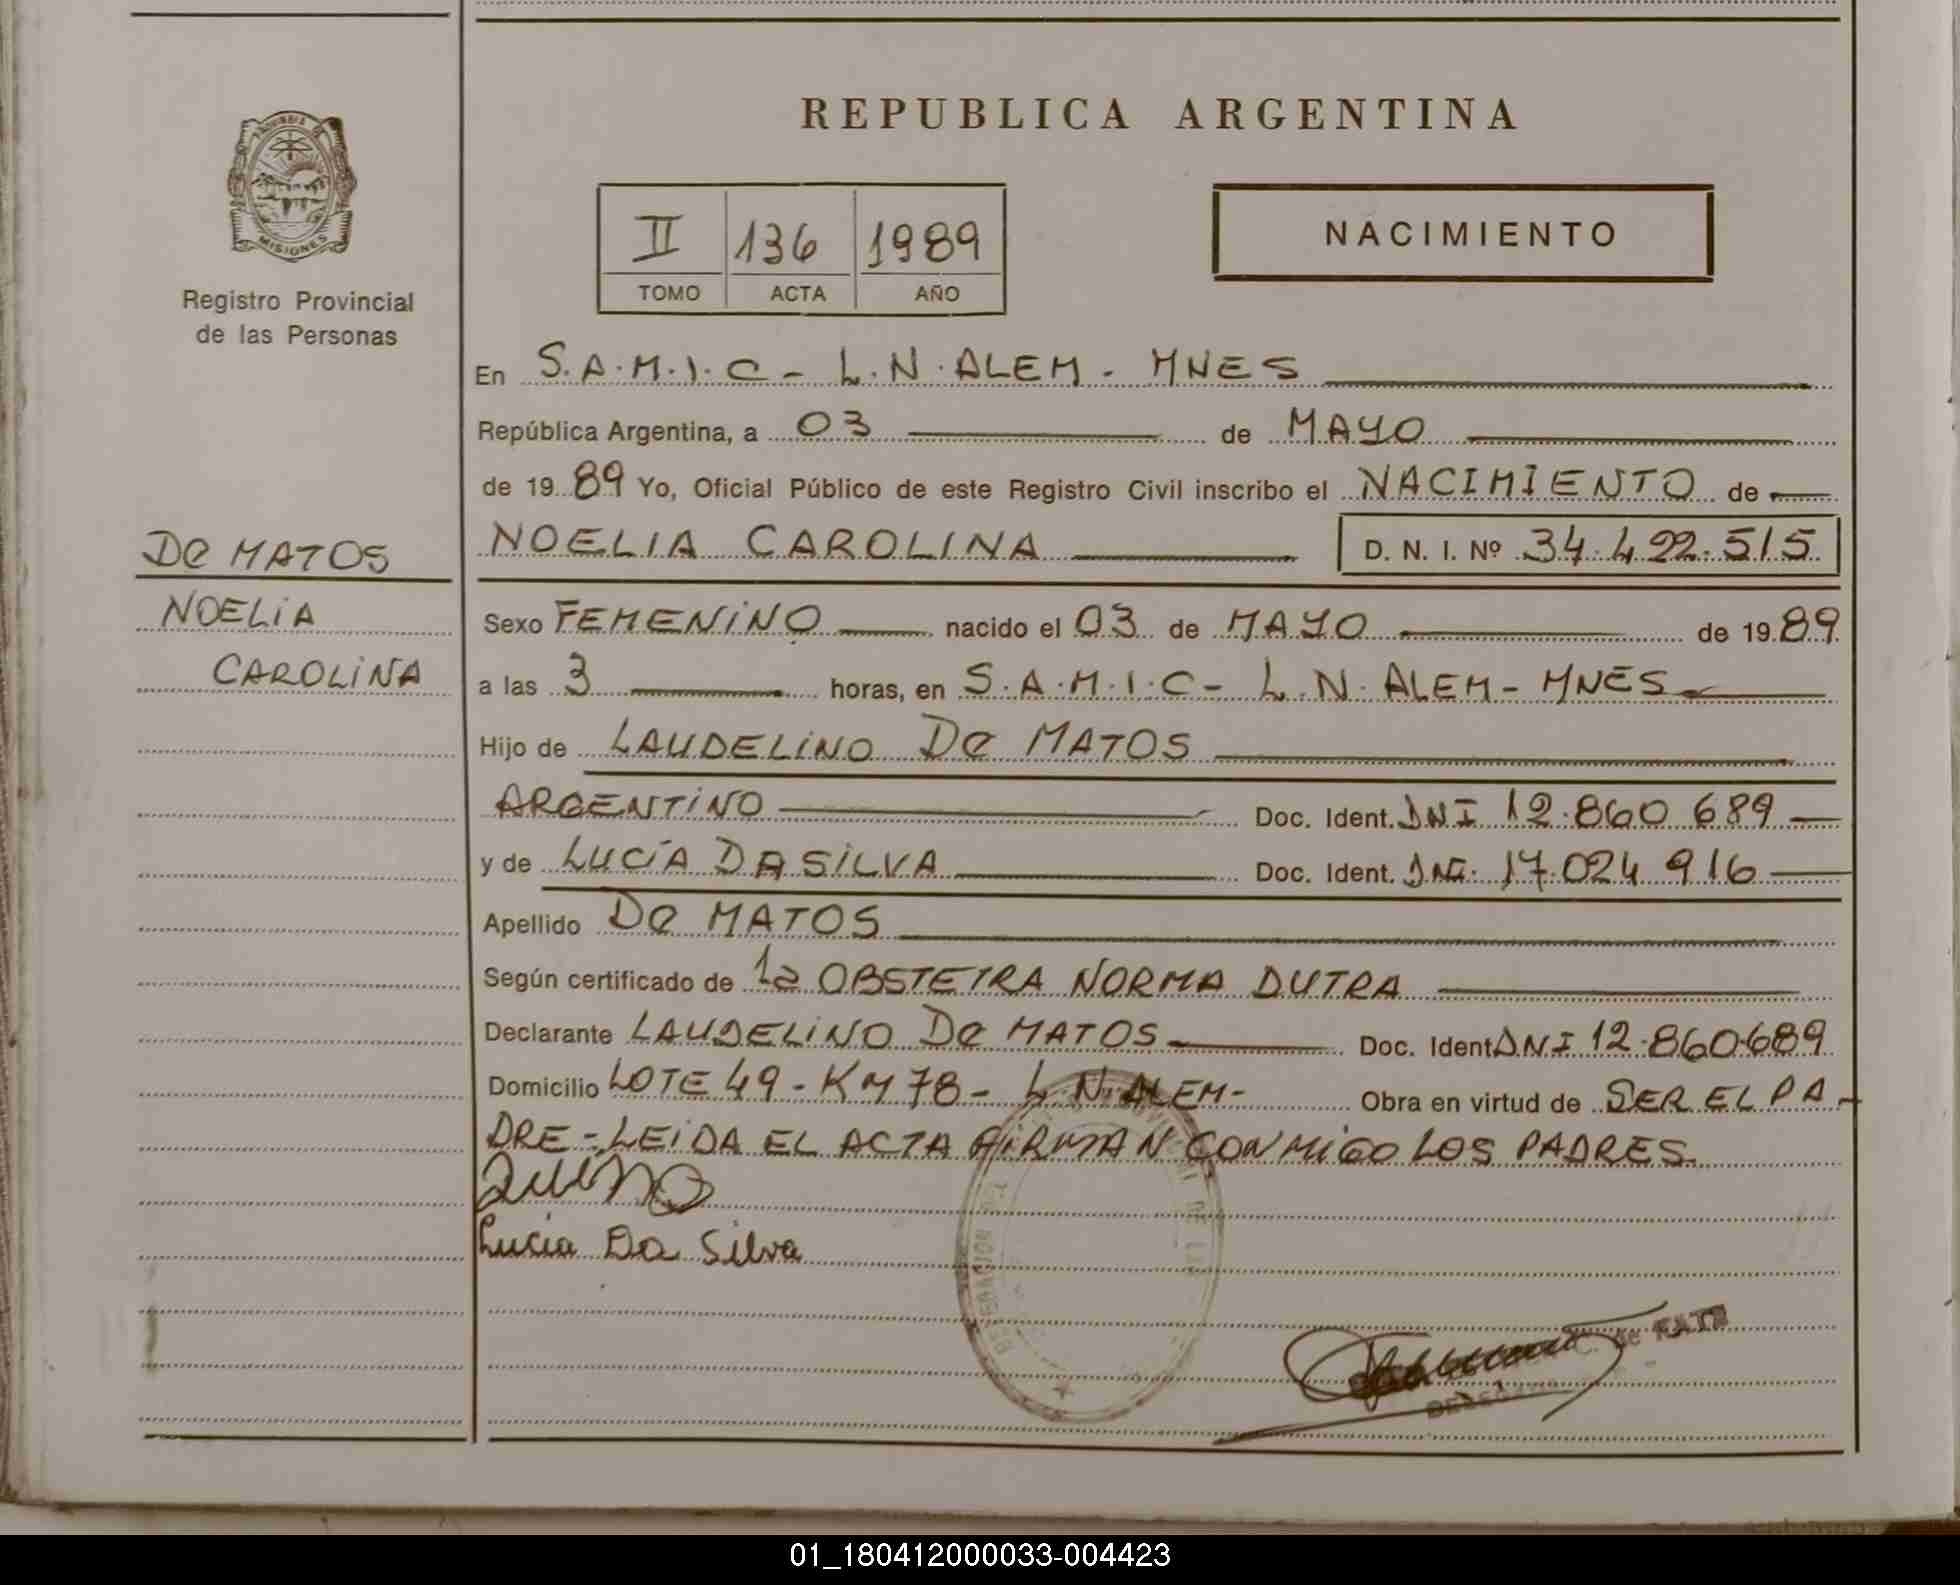 REPUBLICA ARGENTINA
MISIONES
Registro Provincial
de las Personas
II 136 1989
TOMO ACTA AÑO
NACIMIENTO
En S.A.M.I.C - L.N.ALEM - MNES
República Argentina, a 03 de MAYO
de 1989 Yo, Oficial Público de este Registro Civil inscribo el NACIMIENTO de
NOELIA CAROLINA D. N. I. Nº 34.422.515
De MATOS
NOELIA
CAROLINA
Sexo FEMENINO nacido el 03 de MAYO de 1989
a las 3 horas, en S.A.M.I.C - L.N.ALEM - MNES
Hijo de LAUDELINO De MATOS
ARGENTINO Doc. Ident. DNI 12.860 689
y de LUCÍA DA SILVA Doc. Ident. DNI. 17.024 916
Apellido De MATOS
Según certificado de la OBSTETRA NORMA DUTRA
Declarante LAUDELINO De MATOS Doc. Ident DNI 12.860.689
Domicilio LOTE 49 - KM 78 - L.N.ALEM - Obra en virtud de SER EL PA-
DRE - LEIDA EL ACTA FIRMAN CONMIGO LOS PADRES
Lucia Da Silva
01_180412000033-004423